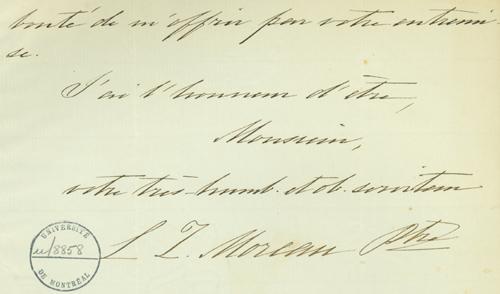 bonté de m'offrir par votre entremi-
se.
J'ai l'honneur d'être,
Monsieur,
votre très-humb. et ob. serviteur
L Z. Moreau Ptre
UNIVERSITÉ
u/8858
DE MONTRÉAL